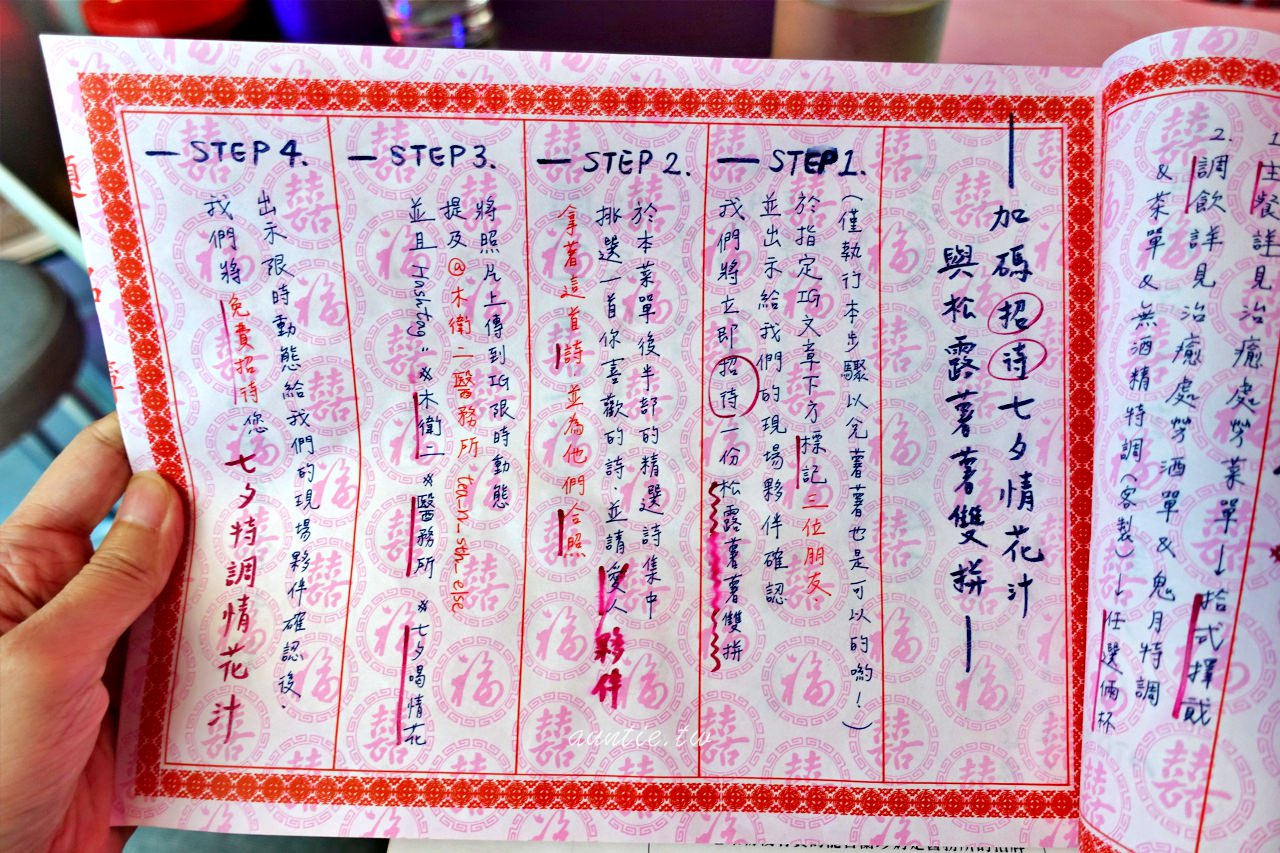 主餐詳見治癒處勞菜單↓
2.調飲詳見治癒處勞酒單&鬼月特調
&菜單&無酒精特調(客製)↓任選倆杯
加碼招待七夕情花汁
與松露薯薯雙拼
STEP 1.
(僅執行本步驟以兌薯薯也是可以的喲!)
於指定IG文章下方標記三位朋友,
並出示給我們的現場夥伴確認
我們將立即招待一份松露薯薯雙拼
STEP 2.
於本菜單後半部的精選詩集中
挑選一首你喜歡的詩,並請愛人 夥伴
拿著這首詩,並為他們合照
STEP 3.
將照片上傳到IG限時動態
提及@木衛二醫務所
並且 Hashtag "※木衛二※醫務所 ※七夕喝情花
STEP 4.
出示限時動態給我們的現場夥伴確認後,
我們將免費招待您七夕特調情花汁
auntie.tw